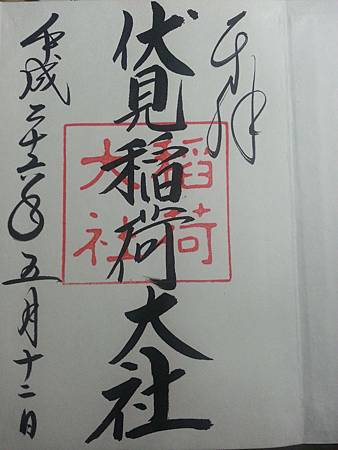 奉拝
伏見稲荷大社
稲荷
大社
平成二十六年五月十二日